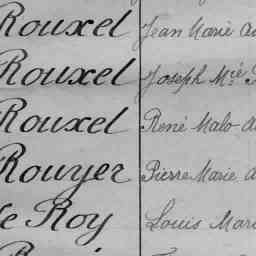 Rouxel Jean Marie
Rouxel Joseph Mié
Rouxel René Malo
Rouyer Pierre Marie
Le Roy Louis